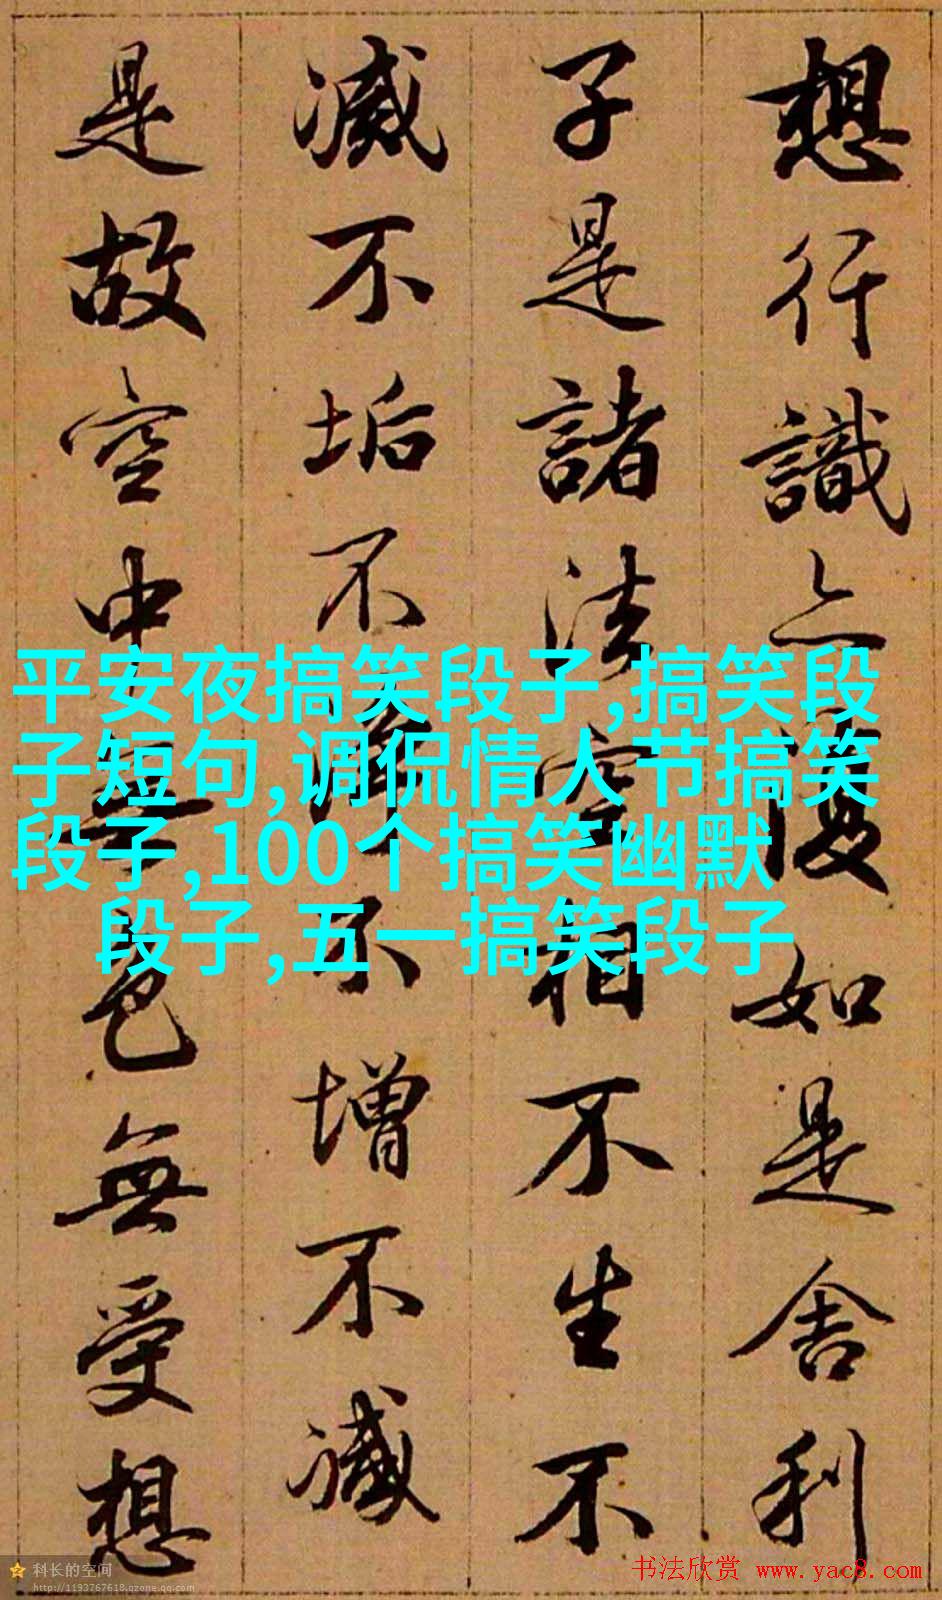 想行識亦復如是舍利
子是諸法空相不生不
滅不垢不淨不增不減
是故空中無色無受想
平安夜搞笑段子,搞笑段
子短句,调侃情人节搞笑
段子,100个搞笑幽默
段子,五一搞笑段子
科长的空间
http://1193767618.qzone.qq.com
书法欣赏 www.yac8.com